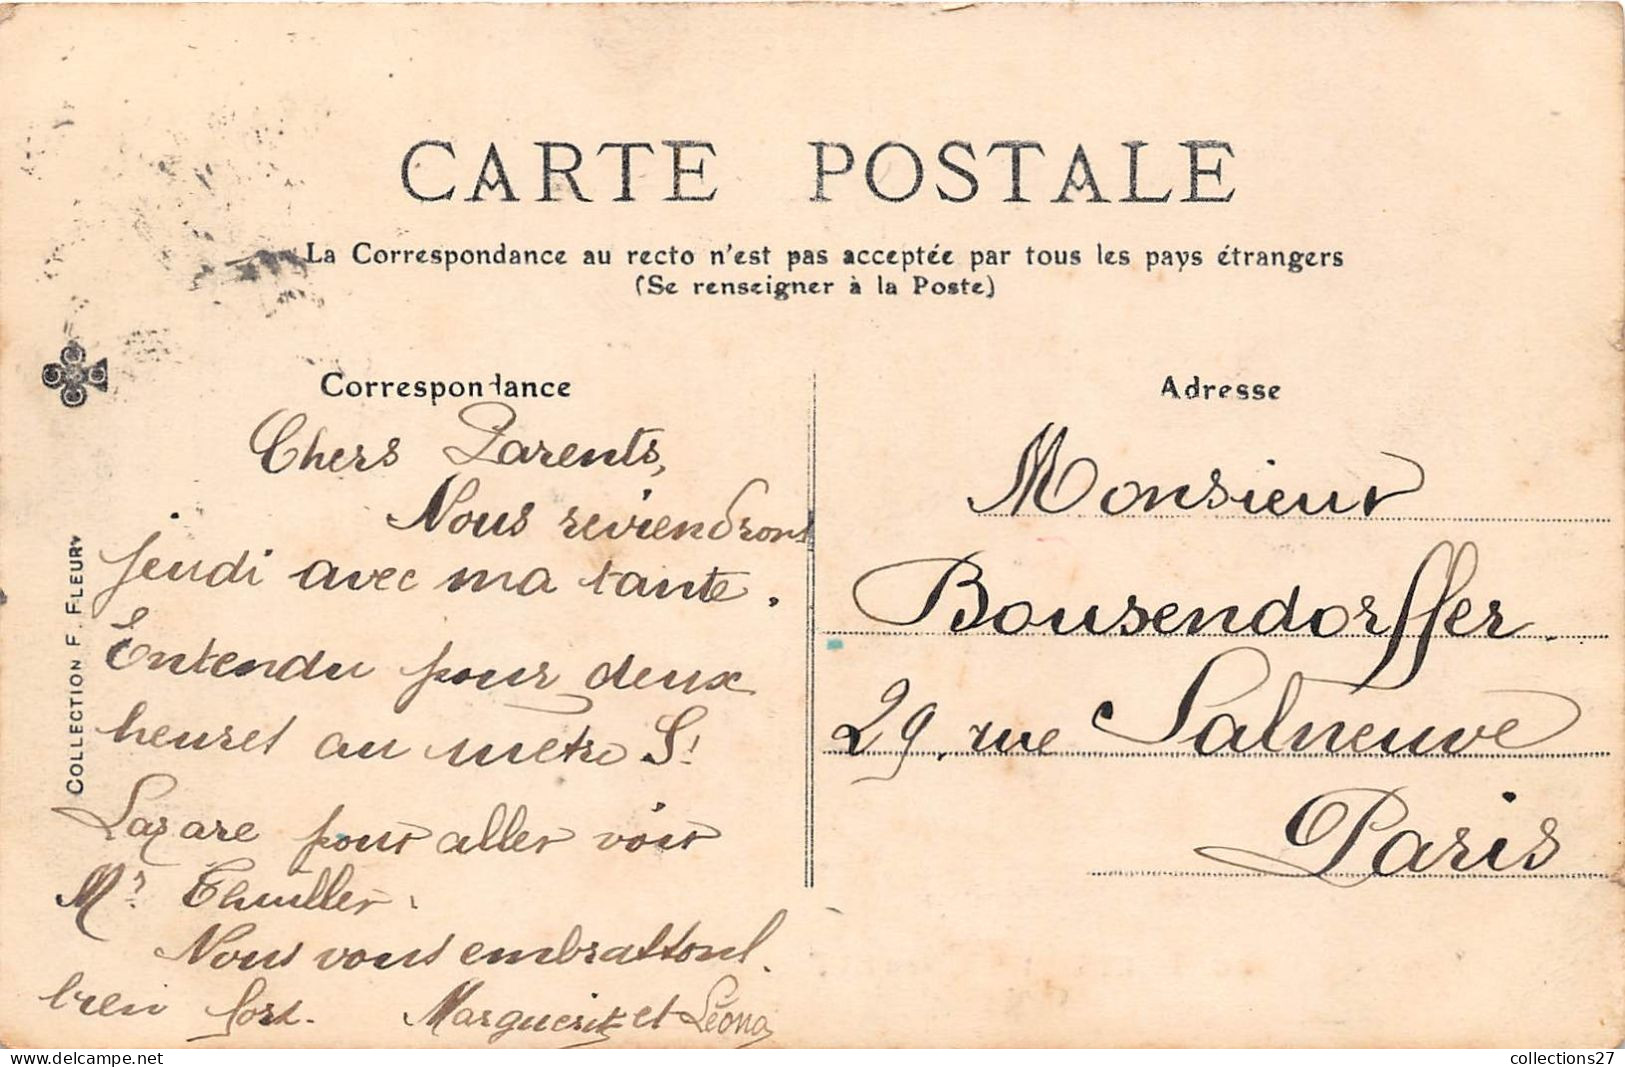 CARTE POSTALE
La Correspondance au recto n'est pas acceptée par tous les pays étrangers
(Se renseigner à la Poste)
Correspondance
Chers Parents,
Nous reviendrons
jeudi avec ma tante.
Entendu pour deux
heures au métro St
Lazare pour aller voir
Mr Thuillier.
Nous vous embrassons
bien fort. Marguerite et Léona
COLLECTION F. FLEURY
Adresse
Monsieur
Bousendorffer
29, rue Salneuve
Paris
collections27